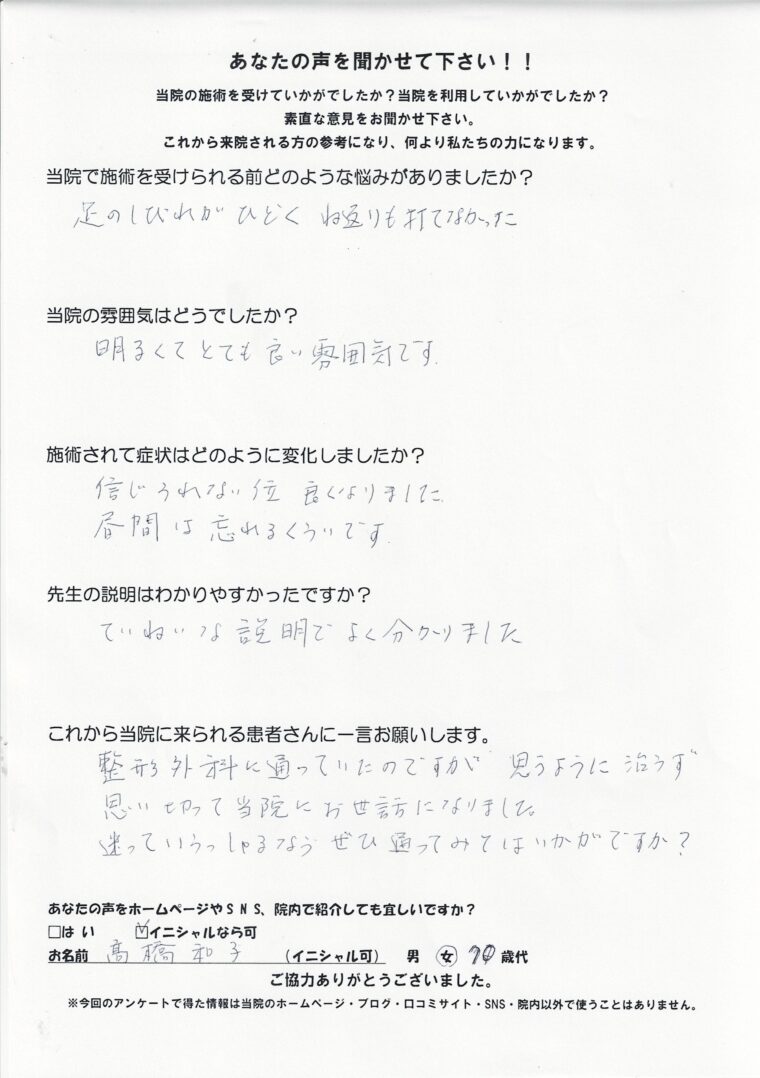 あなたの声を聞かせて下さい！！
当院の施術を受けていかがでしたか？当院を利用していかがでしたか？
素直な意見をお聞かせ下さい。
これから来院される方の参考になり、何より私たちの力になります。
当院で施術を受けられる前どのような悩みがありましたか？
足のしびれがひどく ね返りも打てなかった
当院の雰囲気はどうでしたか？
明るくてとても良い雰囲気です。
施術されて症状はどのように変化しましたか？
信じられない位 良くなりました。
昼間は忘れるくらいです。
先生の説明はわかりやすかったですか？
ていねいな説明でよく分かりました
これから当院に来られる患者さんに一言お願いします。
整形外科に通っていたのですが 思うように治らず
思い切って当院にお世話になりました。
迷っていらっしゃるなら ぜひ通ってみてはいかがですか？
あなたの声をホームページやSNS、院内で紹介しても宜しいですか？
□はい ☑イニシャルなら可
お名前 髙橋和子 （イニシャル可） 男 女 70歳代
ご協力ありがとうございました。
※今回のアンケートで得た情報は当院のホームページ・ブログ・口コミサイト・SNS・院内以外で使うことはありません。